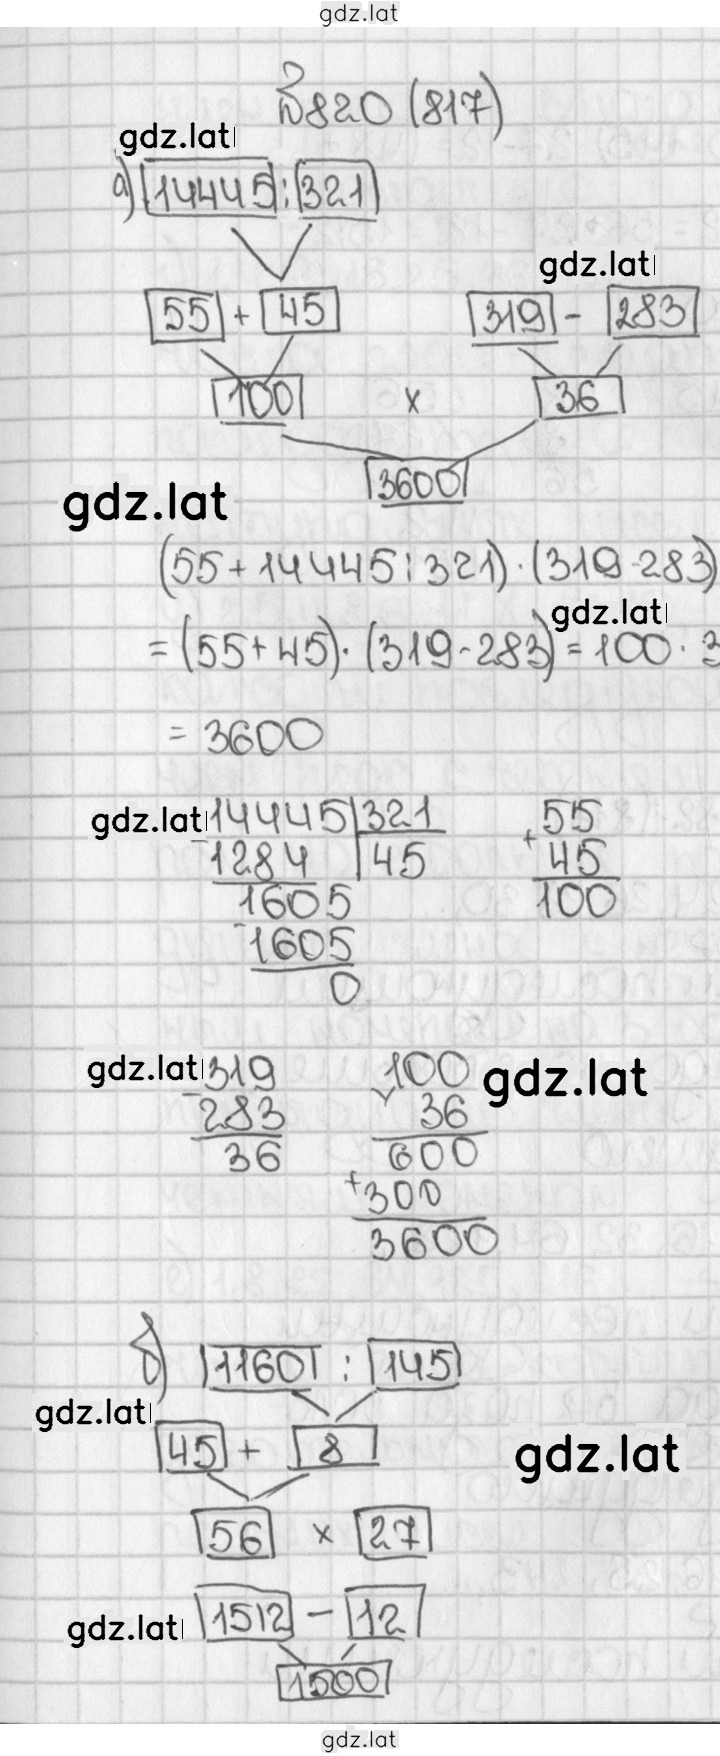 gdz.lat
№820 (817)
gdz.lat
а) 14445 : 321
gdz.lat
55 + 45 319 - 283
100 x 36
3600
gdz.lat
(55 + 14445 : 321) · (319 - 283)
gdz.lat
= (55 + 45) · (319 - 283) = 100 · 3
= 3600
gdz.lat
14445 321 55
- 1284 45 + 45
1605 100
- 1605
0
gdz.lat 319 100 gdz.lat
- 283 x 36
36 600
+ 300
3600
б) 1160 : 145
gdz.lat
45 + 8 gdz.lat
56 x 27
gdz.lat 1512 - 12
1500
gdz.lat